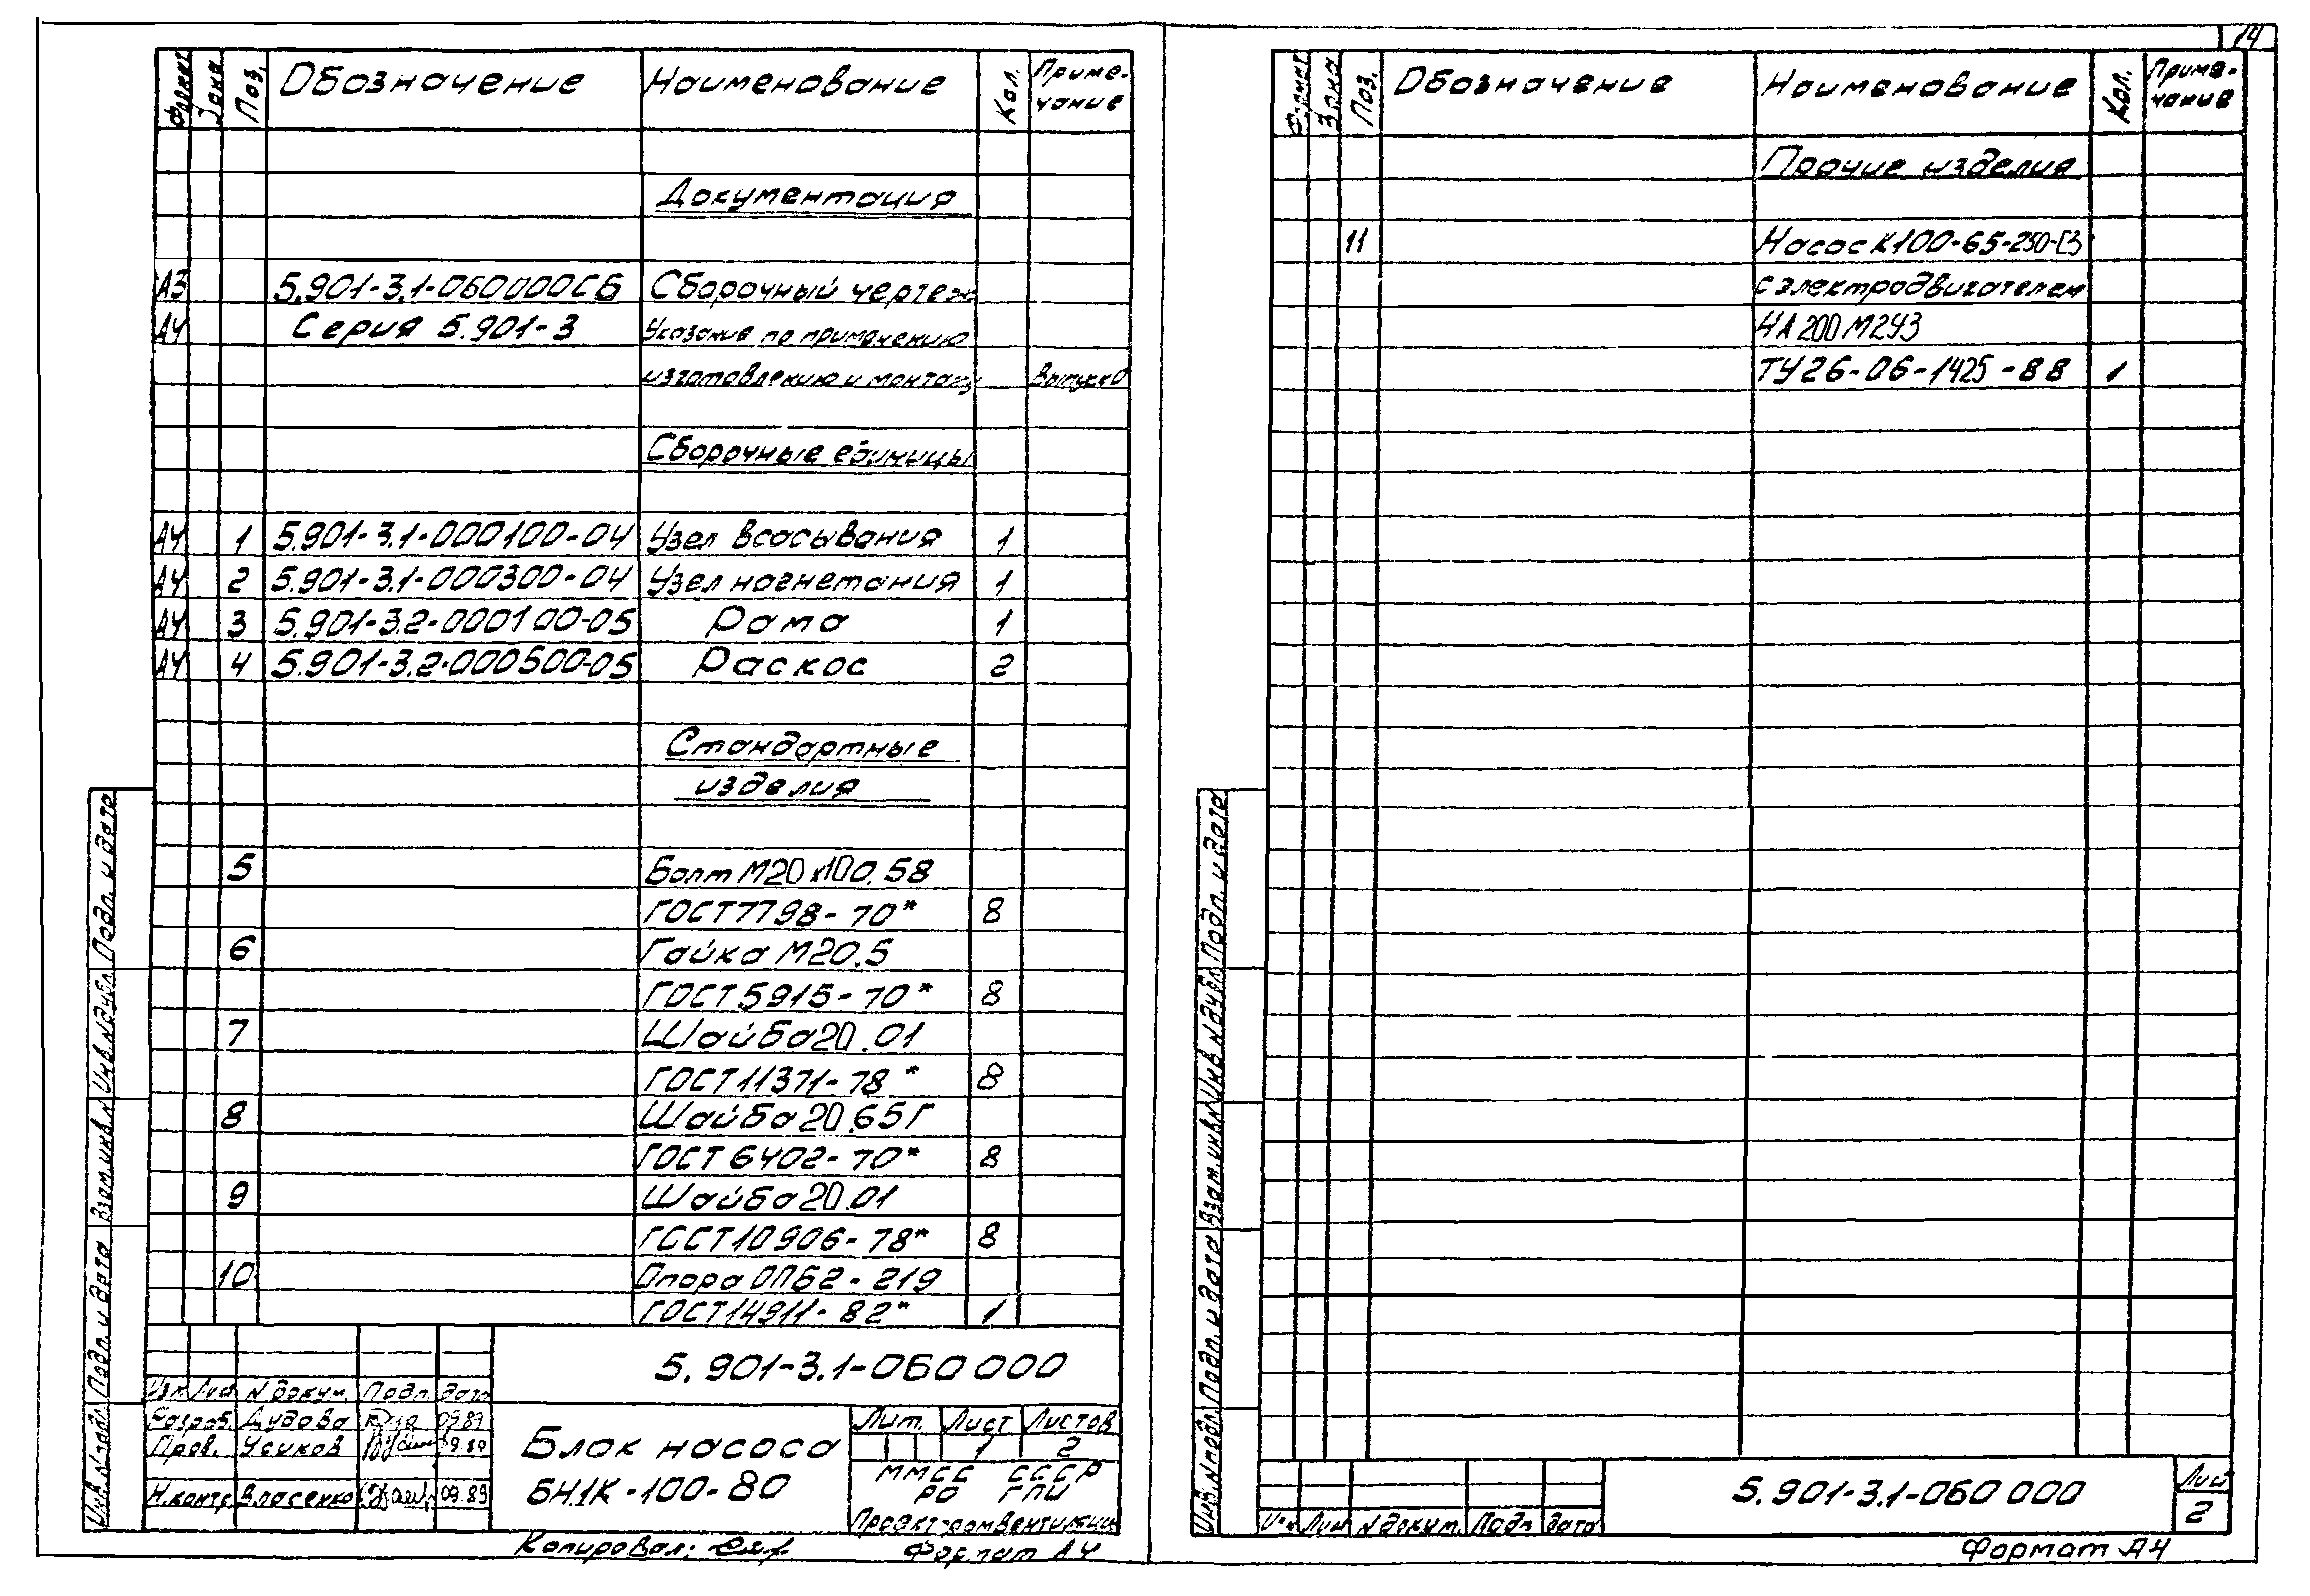 14
Формат Зона Поз. Обозначение Наименование Кол. Приме-
чание
Документация
А3 5.901-3.1-060000СБ Сборочный чертеж
А4 Серия 5.901-3 Указание по применению
изготовлению и монтажу Выпуск 0
Сборочные единицы
А4 1 5.901-3.1-000100-04 Узел всасывания 1
А4 2 5.901-3.1-000300-04 Узел нагнетания 1
А4 3 5.901-3.2-000100-05 Рама 1
А4 4 5.901-3.2-000500-05 Раскос 2
Стандартные
изделия
5 Болт М20х100.58
ГОСТ 7798-70* 8
6 Гайка М20.5
ГОСТ 5915-70* 8
7 Шайба 20.01
ГОСТ 11371-78* 8
8 Шайба 20.65Г
ГОСТ 6402-70* 8
9 Шайба 20.01
ГОСТ 10906-78* 8
10 Опора ОПБ2-219
ГОСТ 14911-82* 1
Инв. N подл. Подп. и дата Взам. инв. N Инв. N дубл. Подп. и дата
5.901-3.1-060 000
Изм. Лис N докум. Подп. Дата
Разраб. Дудова 09.89
Пров. Усиков 09.89
Н.контр. Власенко 09.89
Блок насоса
БН1К-100-80
Лит. Лист Листов
1 2
ММСС СССР
РО ГПИ
Проектпромвентиляция
Копировал: Формат А4
Формат Зона Поз. Обозначение Наименование Кол. Приме-
чание
Прочие изделия
11 Насос К100-65-250-С3
с электродвигателем
4А200М2У3
ТУ26-06-1425-88 1
Инв. N подл. Подп. и дата Взам. инв. N Инв. N дубл. Подп. и дата
Изм Лист N докум. Подп. Дата
5.901-3.1-060 000
Лист
2
Формат А4